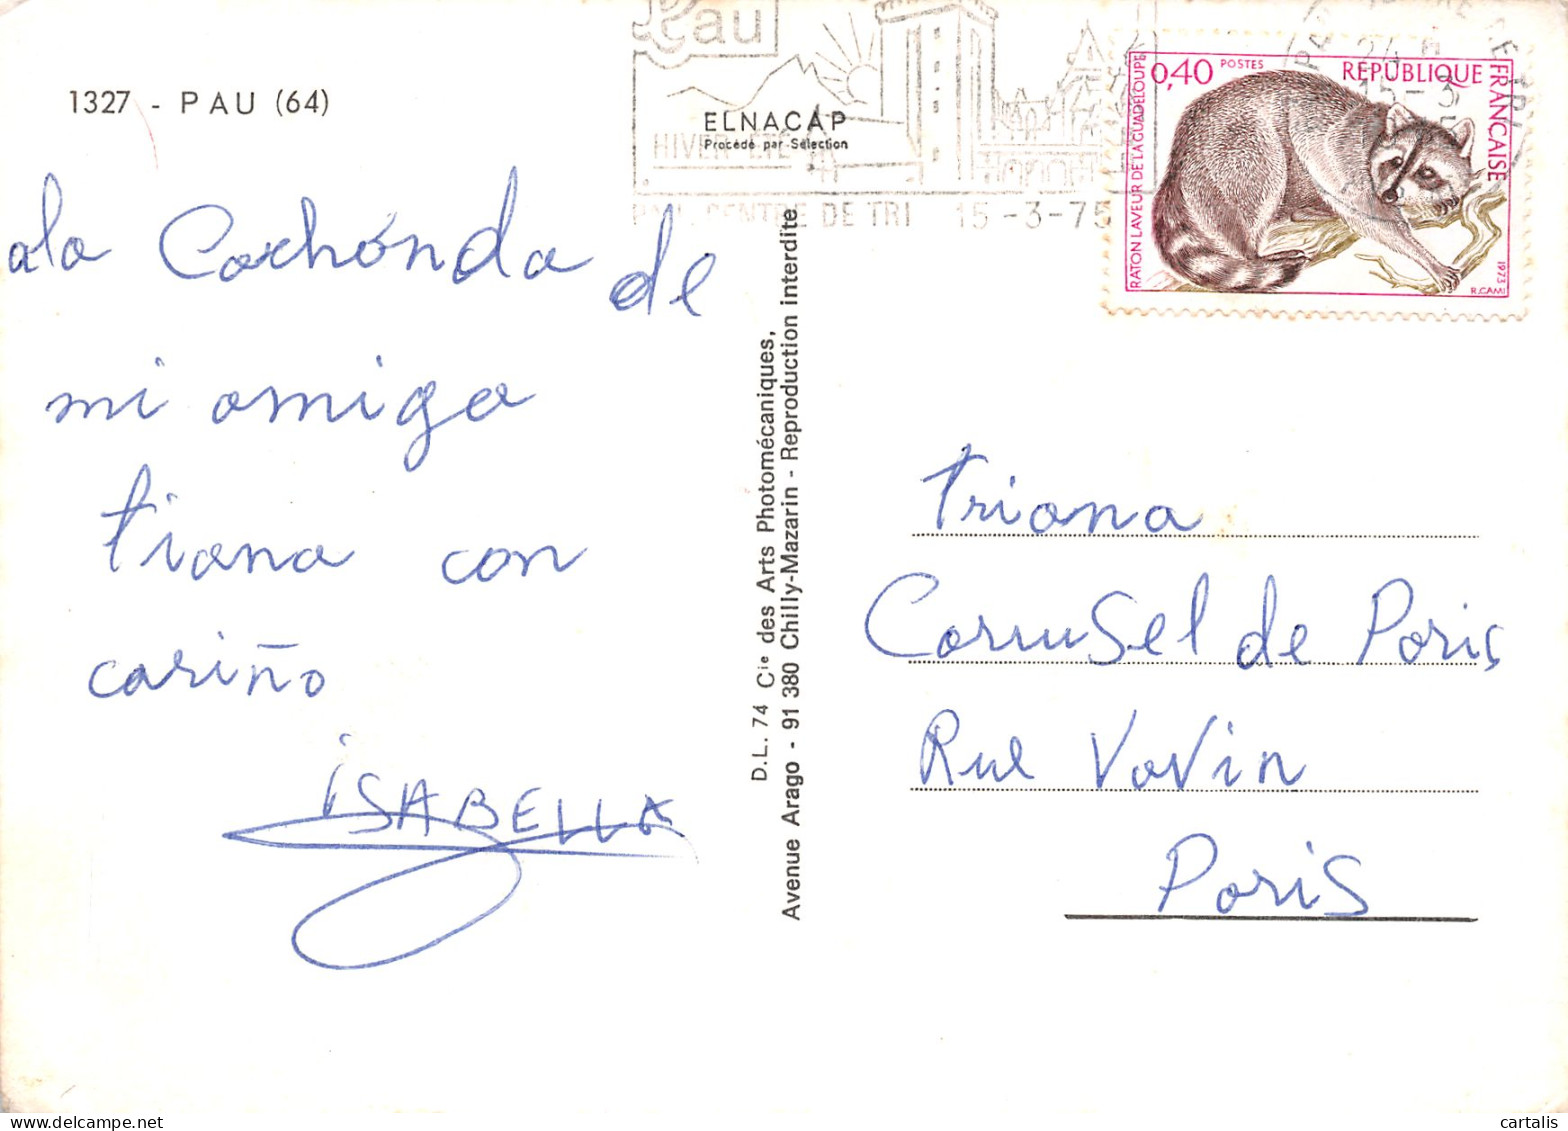 1327 - PAU (64)
ala Cochónda de
mi amiga
tiana con
cariño
ISABELLA
Pau
ELNACAP
Procédé par Sélection
HIVER-ÉTÉ
PAU CENTRE DE TRI 15-3-75
D.L. 74 Cie des Arts Photomécaniques,
Avenue Arago - 91 380 Chilly-Mazarin - Reproduction interdite
0,40 POSTES RÉPUBLIQUE FRANÇAISE
RATON LAVEUR DE LA GUADELOUPE
1973
R.CAMI
Triana
CarruSel de Paris
Rue VaVin
Paris
cartalis